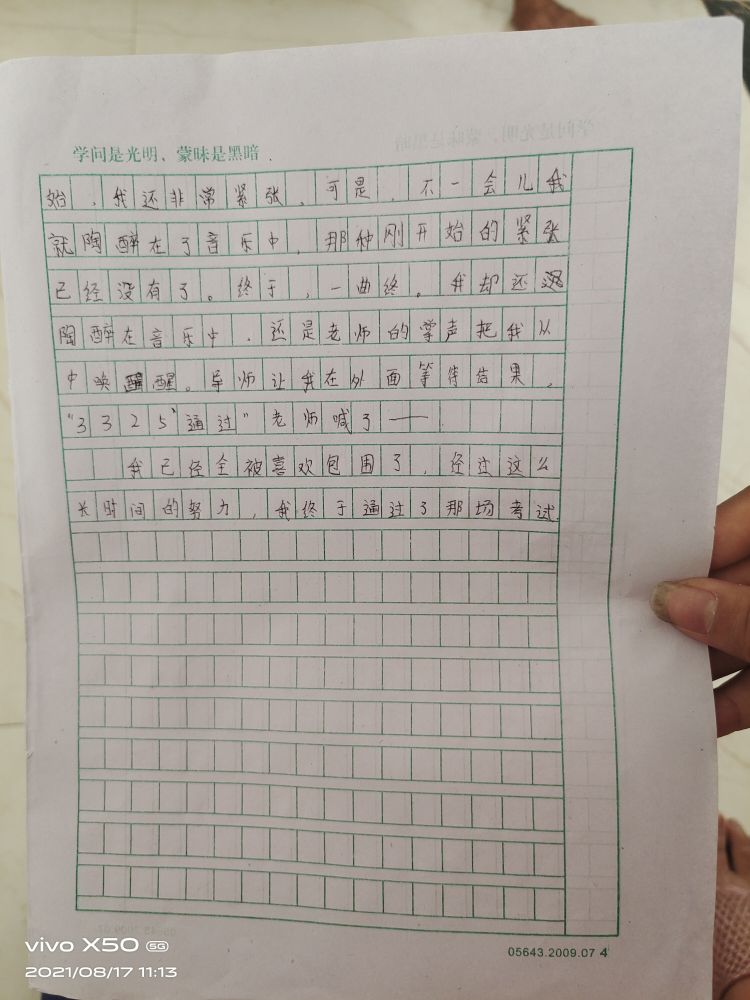 学问是光明，蒙昧是黑暗．
始，我还非常紧张，可是，不一会儿我
就陶醉在了音乐中，那种刚开始的紧张
已经没有了。终于，一曲终。我却还
陶醉在音乐中，还是老师的掌声把我从
中唤醒。导师让我在外面等待结果，
“3325通过”老师喊了——
我已经全被喜欢包围了，经过这么
长时间的努力，我终于通过了那场考试
05643.2009.07 4
vivo X50 5G
2021/08/17 11:13